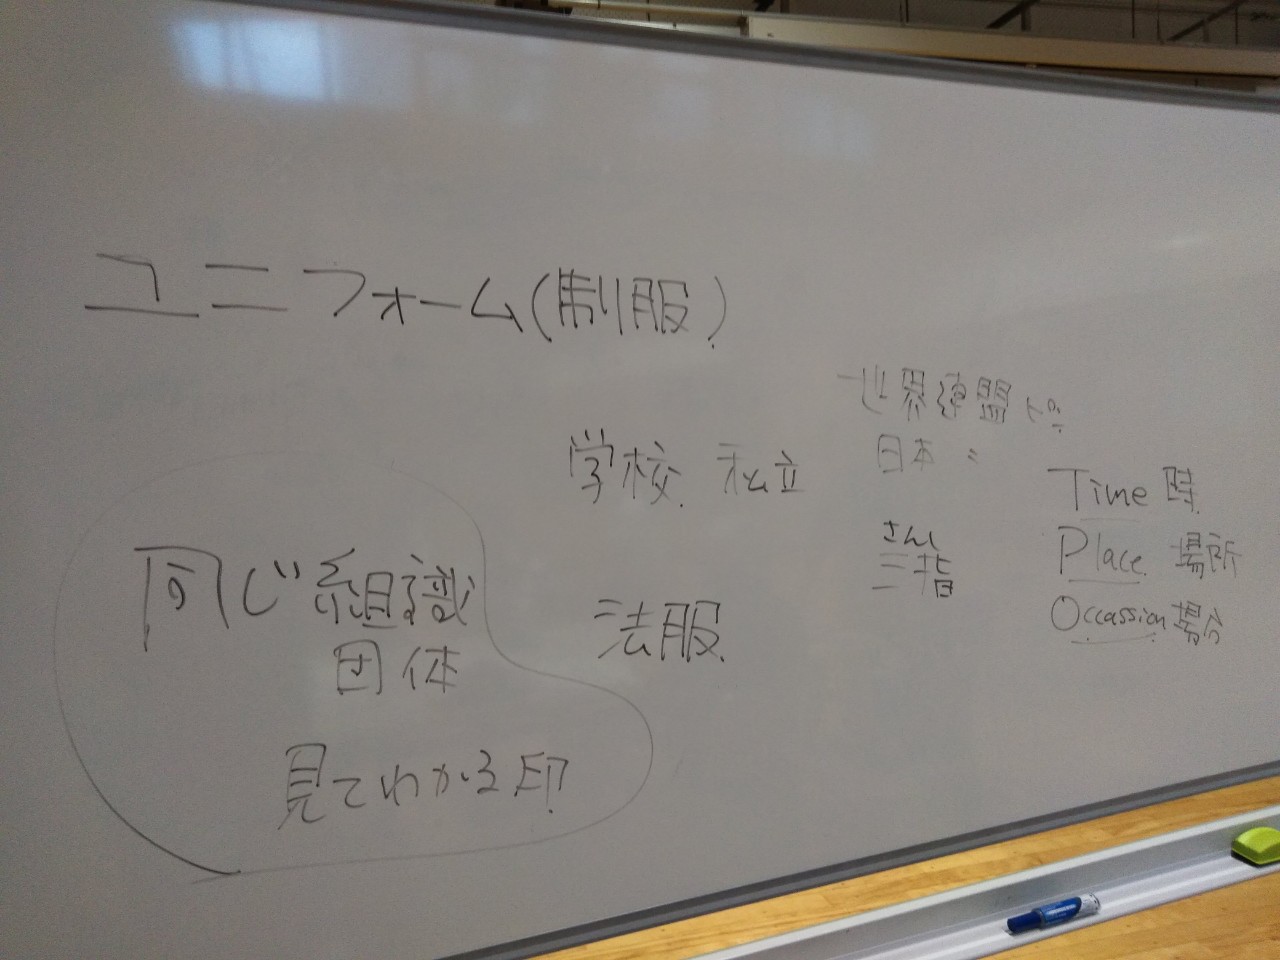 ユニフォーム(制服)
世界連盟ピン
日本 〃
学校 私立
Time 時
Place 場所
Occassion 場合
さんし
三指
法服
同じ組織
団体
見てわかる印